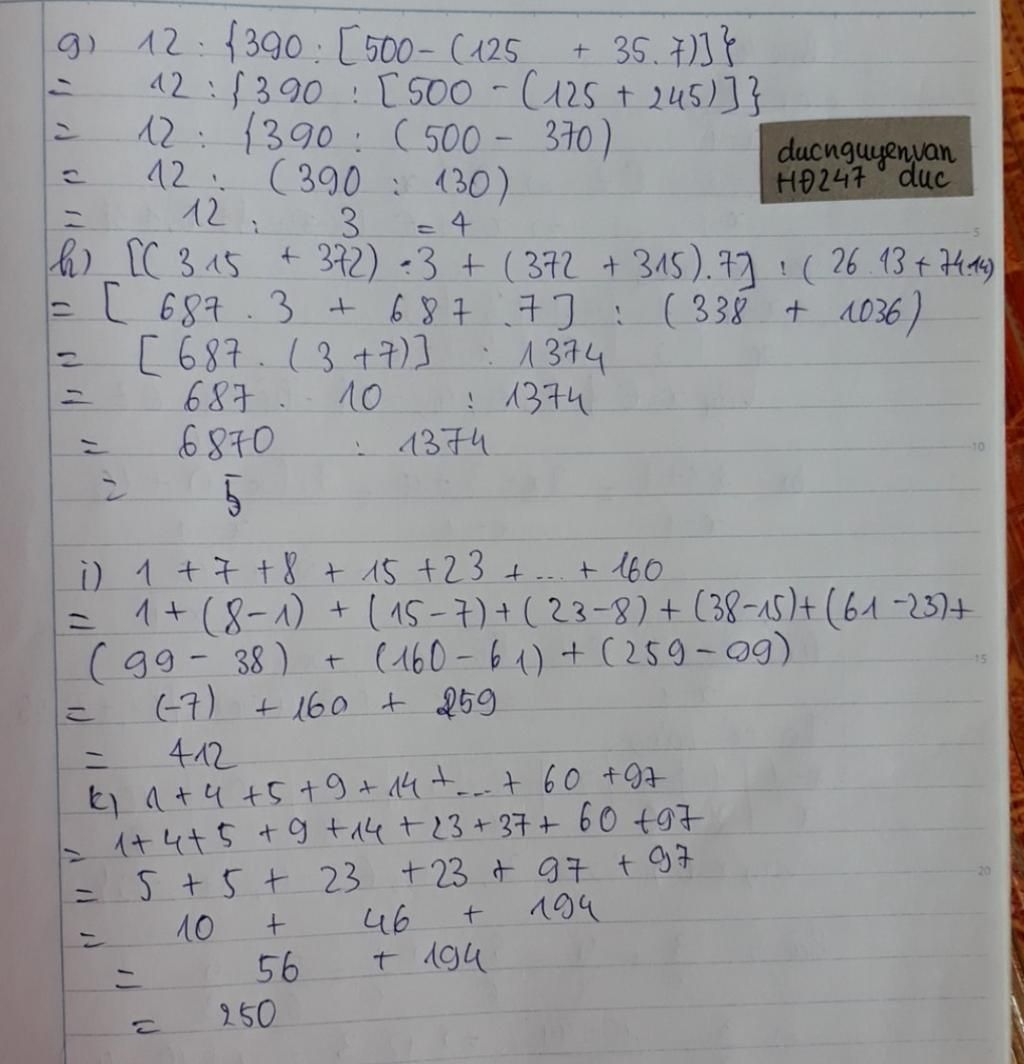 g) 12 : {390 : [500 - (125 + 35.7)]}
= 12 : {390 : [500 - (125 + 245)]}
= 12 : {390 : (500 - 370)
= 12 : (390 : 130)
= 12 : 3 = 4
ducnguyenvan
HĐ247 duc
h) [(315 + 372) . 3 + (372 + 315).7] : (26.13 + 74.14)
= [687 . 3 + 687 .7] : (338 + 1036)
= [687. (3 +7)] : 1374
= 687 . 10 : 1374
= 6870 : 1374
= 5
i) 1 + 7 + 8 + 15 + 23 + ... + 160
= 1 + (8-1) + (15-7) + (23-8) + (38-15) + (61-23) +
(99 - 38) + (160 - 61) + (259 - 99)
= (-7) + 160 + 259
= 412
k) 1 + 4 + 5 + 9 + 14 + ... + 60 + 97
= 1 + 4 + 5 + 9 + 14 + 23 + 37 + 60 + 97
= 5 + 5 + 23 + 23 + 97 + 97
= 10 + 46 + 194
= 56 + 194
= 250
5
10
15
20